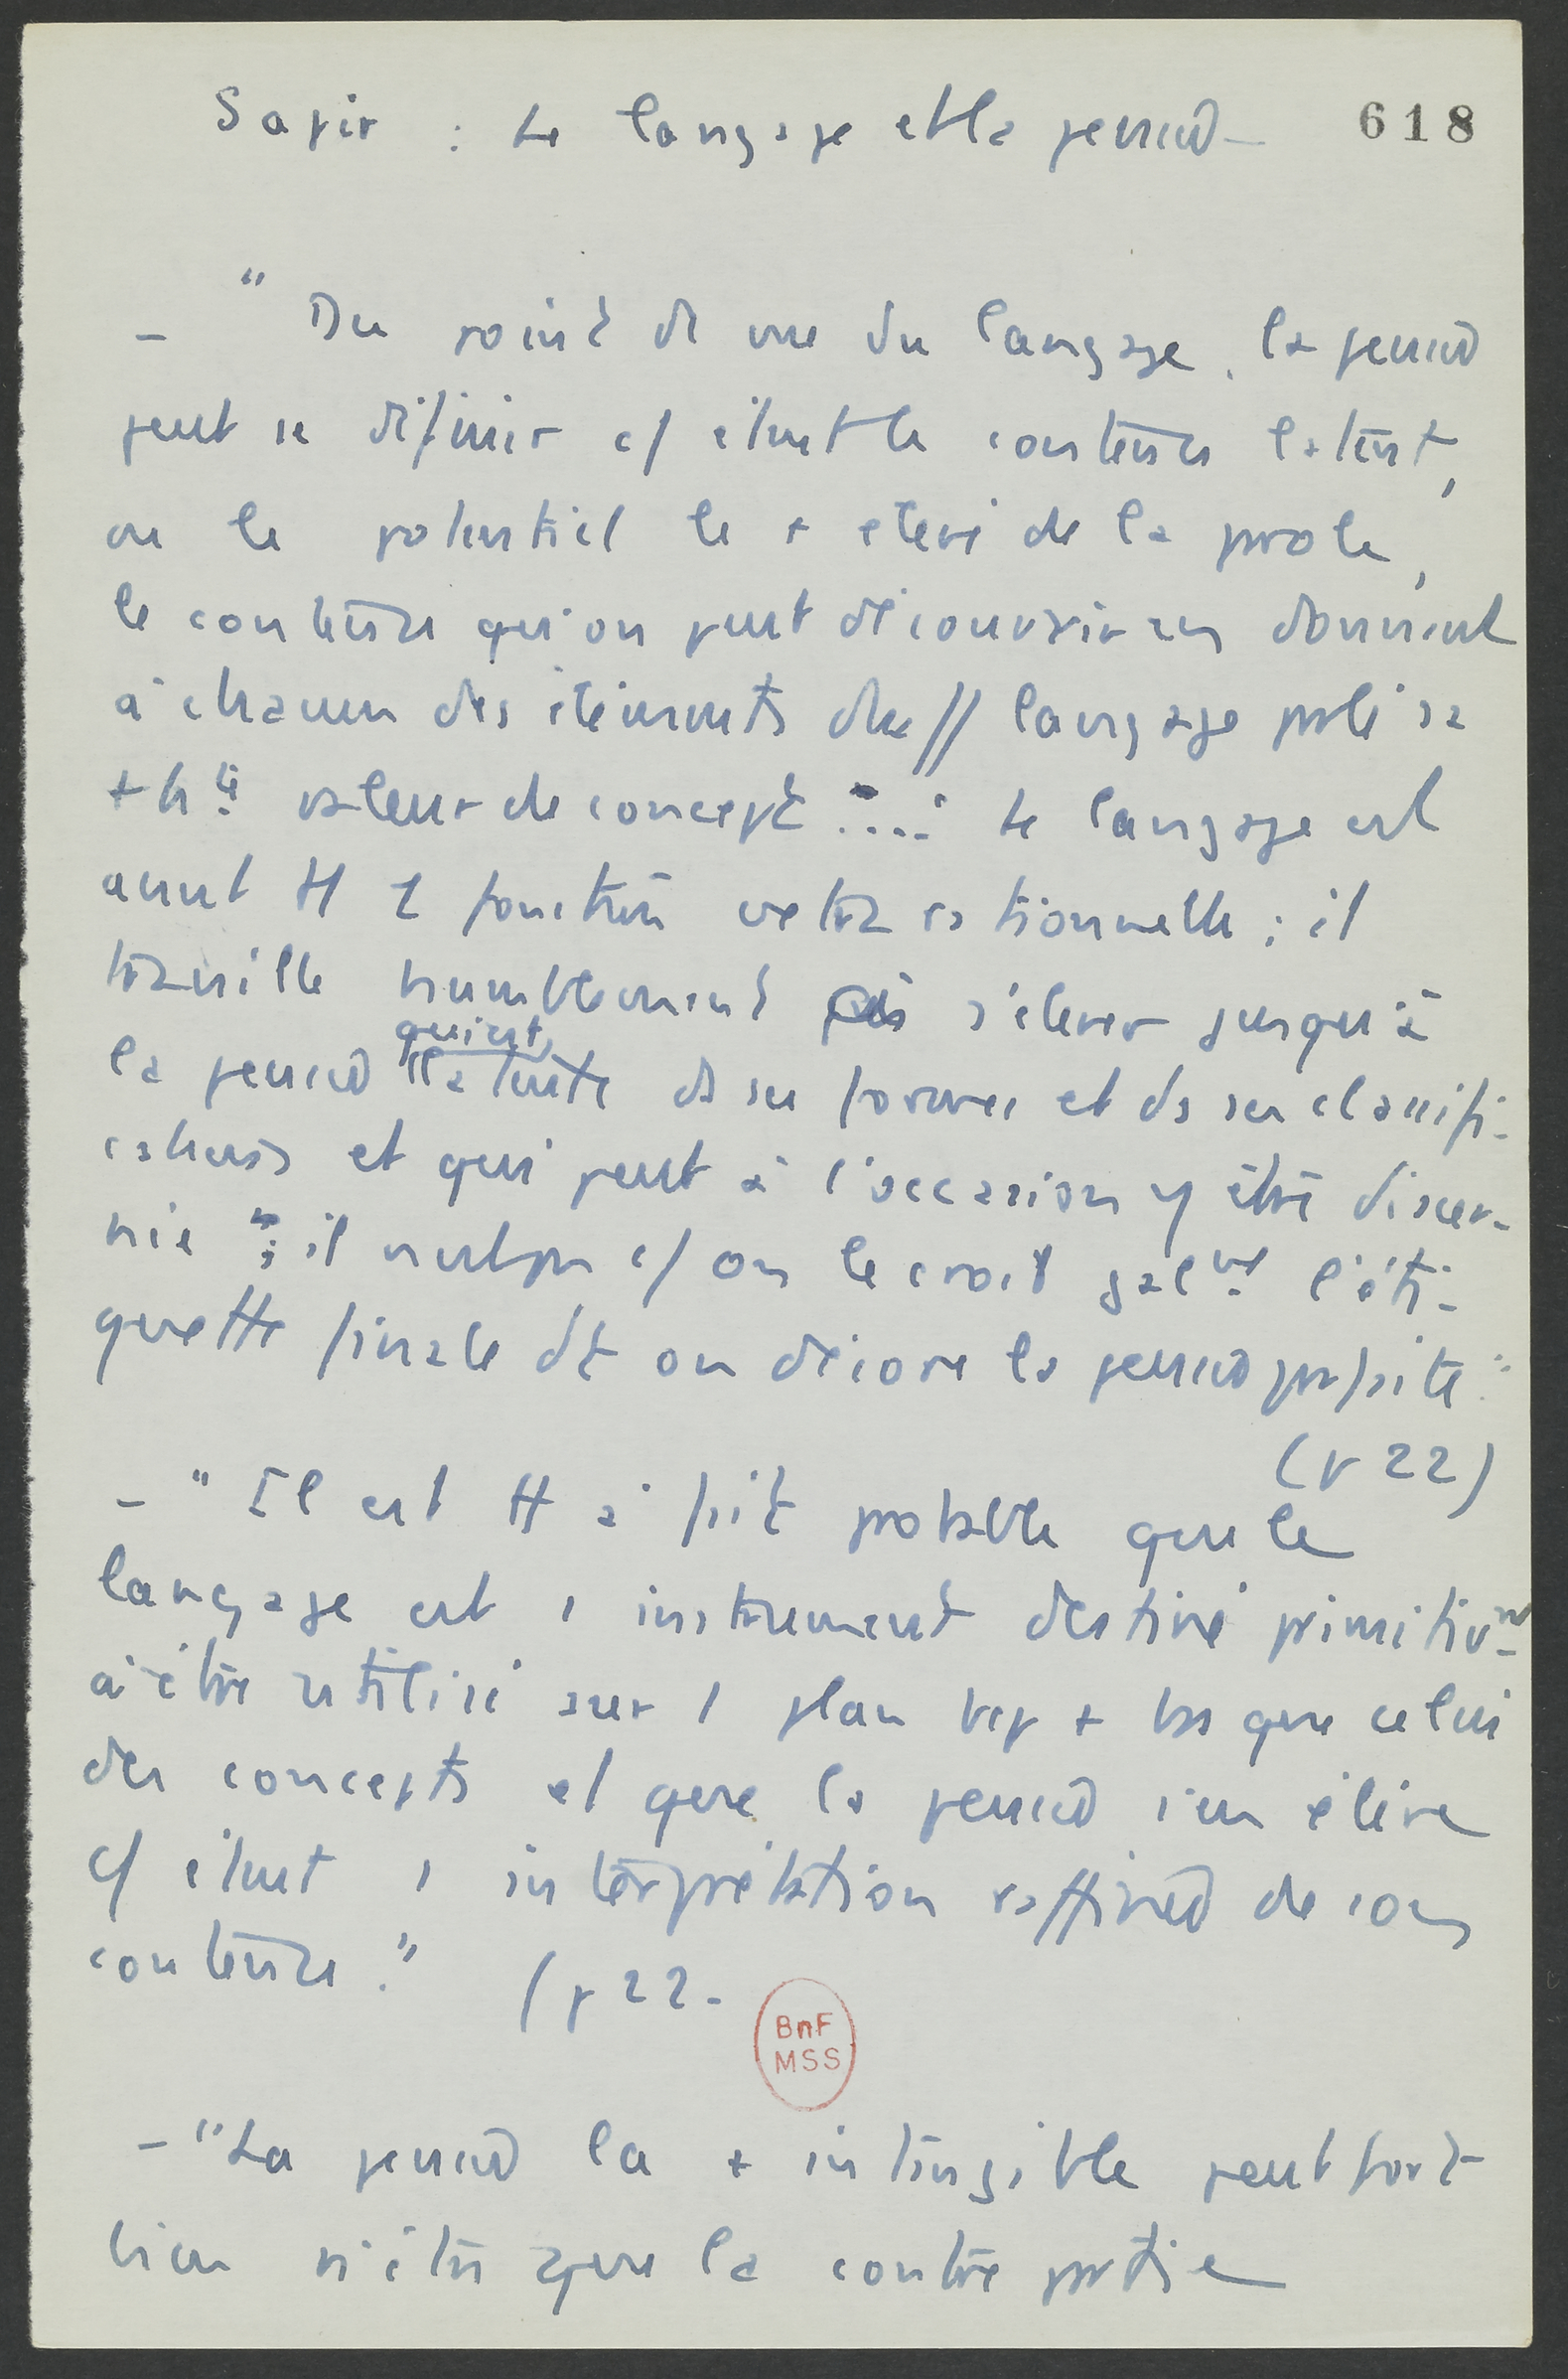 Sapir : Le langage et la pensée 618
– " Du point de vue du langage, la pensée
peut se définir c/ étant le contenu latent,
ou le potentiel le + élevé de la parole,
le contenu qu'on peut découvrir en donnant
à chacun des éléments du // langage parlé sa
+ hte valeur de concept ..... Le langage est
avant tt 1 fonction extra rationnelle ; il
travaille humblement à s'élever jusqu'à
la pensée qui est latente ds ses formes et ds ses classifi-
cations et qui peut à l'occasion y être discer-
née ; il n'est pas c/ on le croit galmt l'éti-
quette finale dt on décore la pensée parfaite."
(p 22)
– " Il est tt à fait probable que le
langage est 1 instrument destiné primitivmt
à être utilisé sur 1 plan bcp + bas que celui
des concepts et que la pensée s'en élève
c/ étant 1 interprétation raffinée de son
contenu." (p 22.
BnF
MSS
– "La pensée la + intangible peut fort
bien n'être que la contre partie